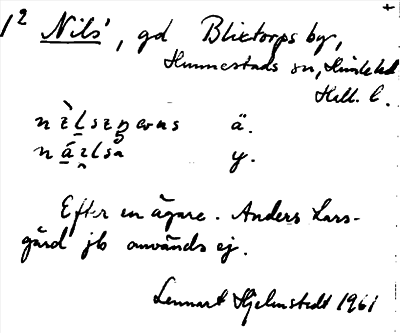 1² Nils', gd Blixtorps by,
Hunnestads sn, Himle hd
Hall. l.
ä.
y.
Efter en ägare. Anders Lars-
gård jb används ej.
Lennart Hjelmstedt 1961